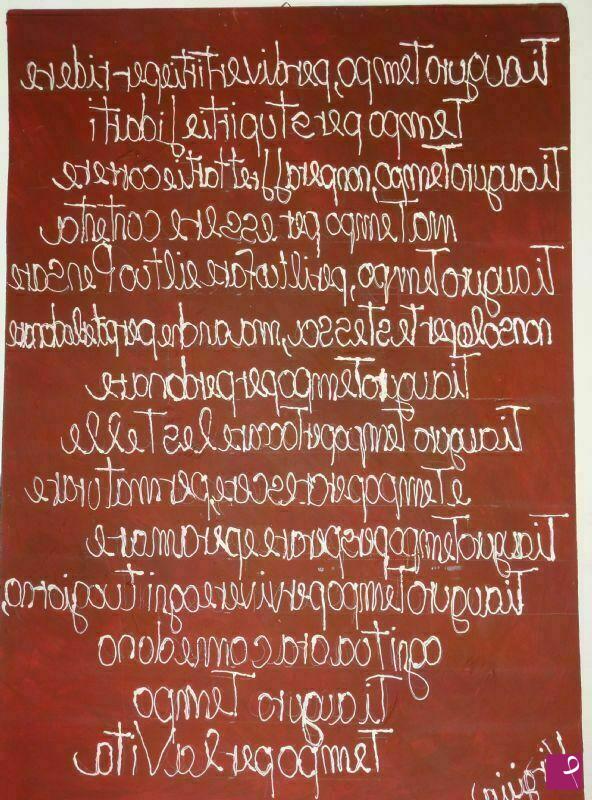 Ti auguro Tempo, per divertirti e per ridere
Tempo per stupirti e fidarti
Ti auguro Tempo, non per affrettarti e correre
ma Tempo per essere contenta
Ti auguro Tempo, per il tuo fare e il tuo Pensare
non solo per te stessa, ma anche per poterlo donare
Ti auguro Tempo per perdonare
Ti auguro Tempo per Toccare le stelle
e Tempo per crescere, per maturare
Ti auguro Tempo per sperare e per amare
Ti auguro Tempo per vivere ogni tuo giorno,
ogni tua ora come dono
Ti auguro Tempo
Tempo per la Vita
Virginia